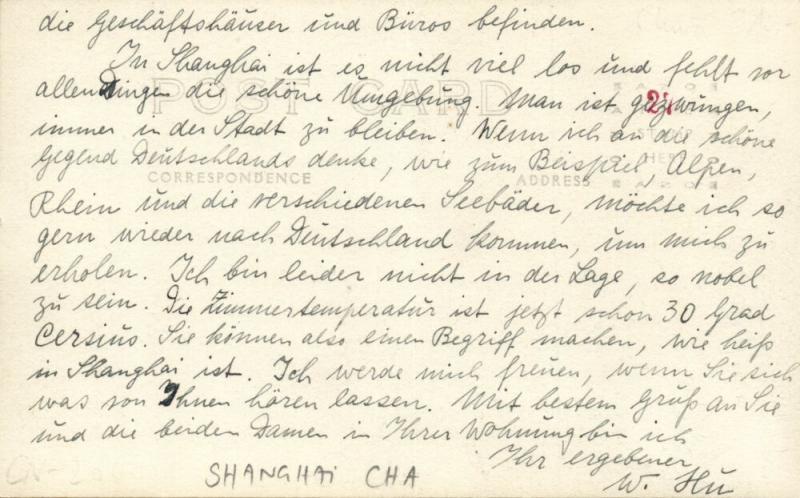 die Geschäftshäuser und Büros befinden.
In Shanghai ist es nicht viel los und fehlt vor
allen Dingen die schöne Umgebung. Man ist gezwungen,
POST CARD
immer in der Stadt zu bleiben. Wenn ich an die schöne
Gegend Deutschlands denke, wie zum Beispiel, Alpen,
CORRESPONDENCE ADDRESS
Rhein und die verschiedenen Seebäder, möchte ich so
gern wieder nach Deutschland kommen, um mich zu
erholen. Ich bin leider nicht in der Lage, so nobel
zu sein. Die Zimmertemperatur ist jetzt schon 30 Grad
Cersius. Sie können also einen Begriff machen, wie heiß
in Shanghai ist. Ich werde mich freuen, wenn Sie sich
was von Ihnen hören lassen. Mit bestem Gruß an Sie
und die beiden Damen in Ihrer Wohnung bin ich
Ihr ergebener
W. Hu
SHANGHAI CHA